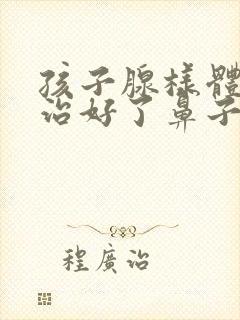 孩子腺樣體
治好了鼻子
程廣治